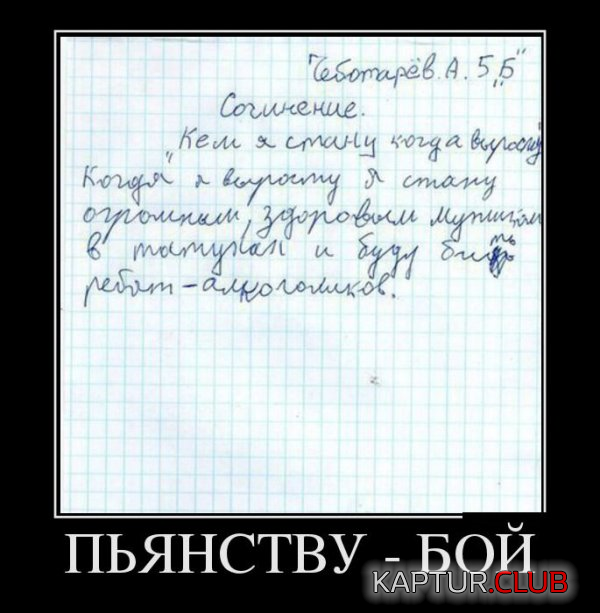 Чеботарёв. А. 5 „Б"
Сочинение.
„Кем я стану когда вырасту"
Когда я вырасту я стану
огромным, здоровым мужиком
в татухах и буду бить
ребят-алкоголиков.
ПЬЯНСТВУ - БОЙ
KAPTUR.CLUB